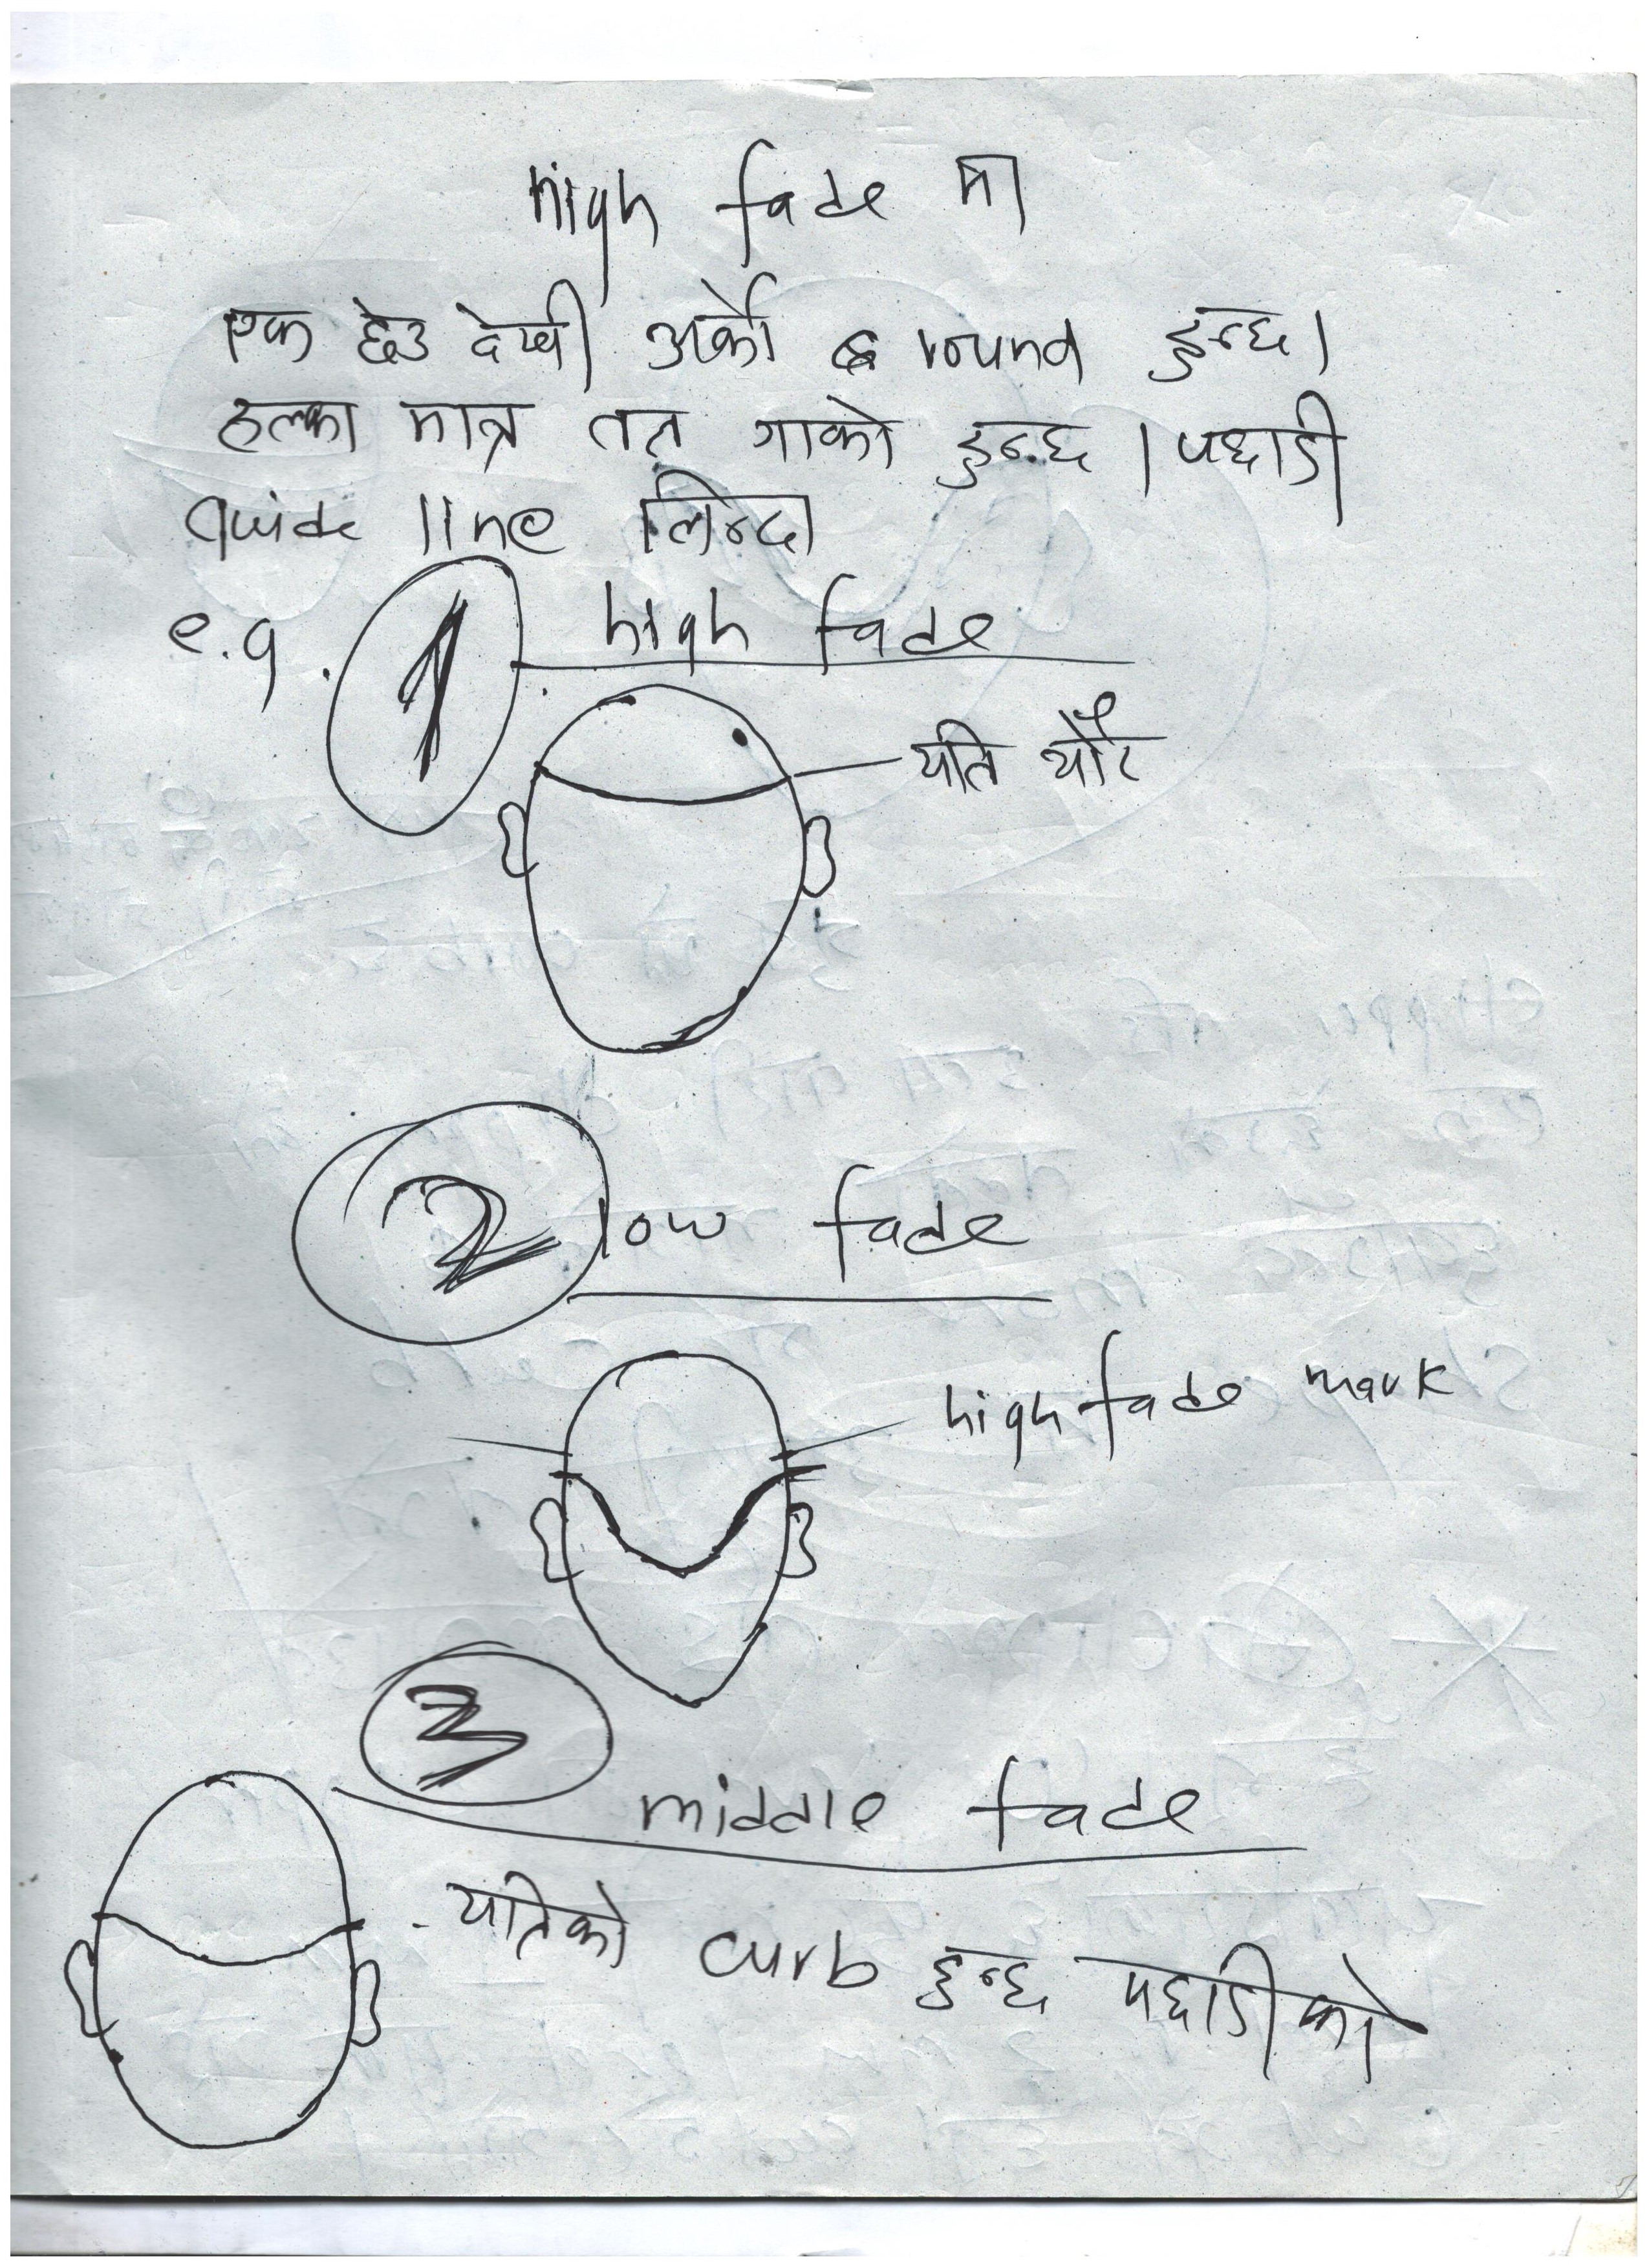 high fade मा
एक छेउ देखी अर्को round हुन्छ।
हल्का मात्र तल गाको हुन्छ। पछाडी
guide line लिन्दा
e.g. 1 high fade
यति
2 low fade
high fade mark
3
middle fade
- यतिको curb हुन्छ पछाडीको